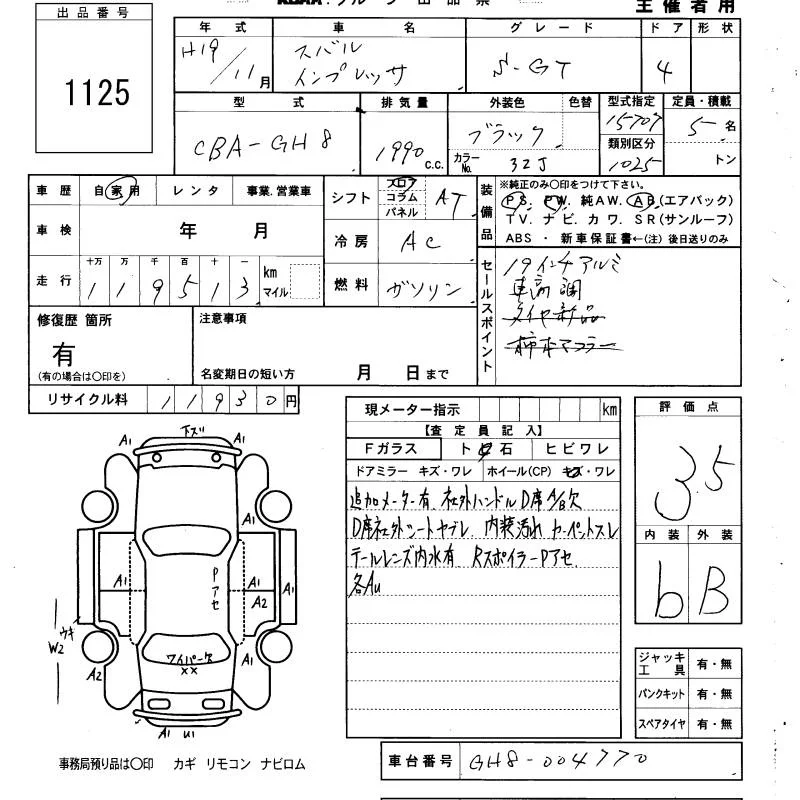 主催者用
出品番号
1125
年式 車名 グレード ドア 形状
H19/11月 スバル インプレッサ S-GT 4
型式 排気量 外装色 色替 型式指定 定員・積載
CBA-GH8 1990 c.c. ブラック 15707 5名
カラーNo. 32J 類別区分 1025 トン
車歴 自家用 レンタ 事業.営業車
車検 年 月
走行 十万 万 千 百 十 一
119513 km マイル
シフト フロア コラム パネル AT
冷房 AC
燃料 ガソリン
装備品
※純正のみ〇印をつけて下さい。
PS. PW. 純AW. AB(エアバック)
TV. ナビ. カワ. SR(サンルーフ)
ABS ・ 新車保証書←(注) 後日送りのみ
セールスポイント
19インチアルミ
車高調
タイヤ新品
柿本マフラー
修復歴 箇所
有
(有の場合は〇印を)
注意事項
名変期日の短い方 月 日まで
リサイクル料 11930円
現メーター指示 km
【査定員記入】
Fガラス ト 石 ヒビワレ
ドアミラー キズ・ワレ ホイール(CP) キズ・ワレ
追加メーター有 社外ハンドル D席A/B欠
D席社外シートヤブレ 内装汚れ カーペットスレ
テールレンズ内水有 RスポイラーPアセ
各Au
評価点
3.5
内装 外装
b B
ジャッキ 工具 有・無
パンクキット 有・無
スペアタイヤ 有・無
A1 下ズリ A1
A1
A1 Pアセ A1
A2
ウキ
W2
A2 ワイパー欠 A1
××
A1 U1
事務局預り品は〇印 カギ リモコン ナビロム
車台番号 GH8-004770